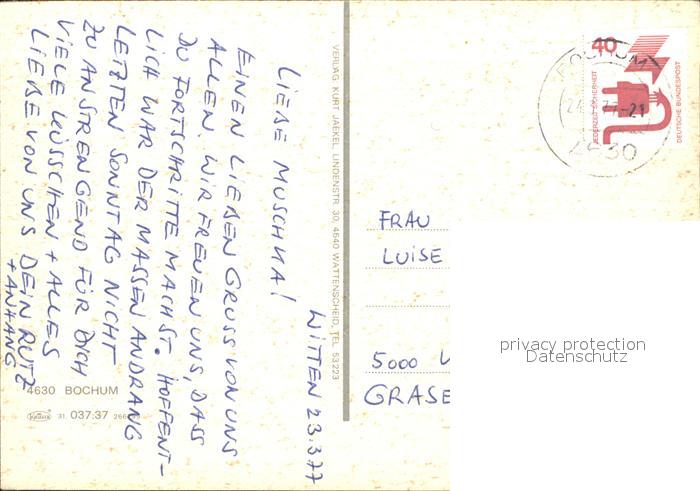 WITTEN 23.3.77
LIEBE MUSCHKA!
EINEN LIEBEN GRUSS VON UNS
ALLEN. WIR FREUEN UNS, DASS
DU FORTSCHRITTE MACHST. HOFFENT-
LICH WAR DER MASSEN ANDRANG
LETZTEN SONNTAG NICHT
ZU ANSTRENGEND FÜR DICH
VIELE KÜSSCHEN + ALLES
LIEBE VON UNS DEIN RUTZ
+ ANHANG
4630 BOCHUM
31. 037.37
VERLAG KURT JAEKEL LINDENSTR. 30, 4640 WATTENSCHEID, TEL. 53223
40
JEDERZEIT SICHERHEIT
DEUTSCHE BUNDESPOST
BOCHUM
4630
FRAU
LUISE
5000
GRASE
privacy protection
Datenschutz